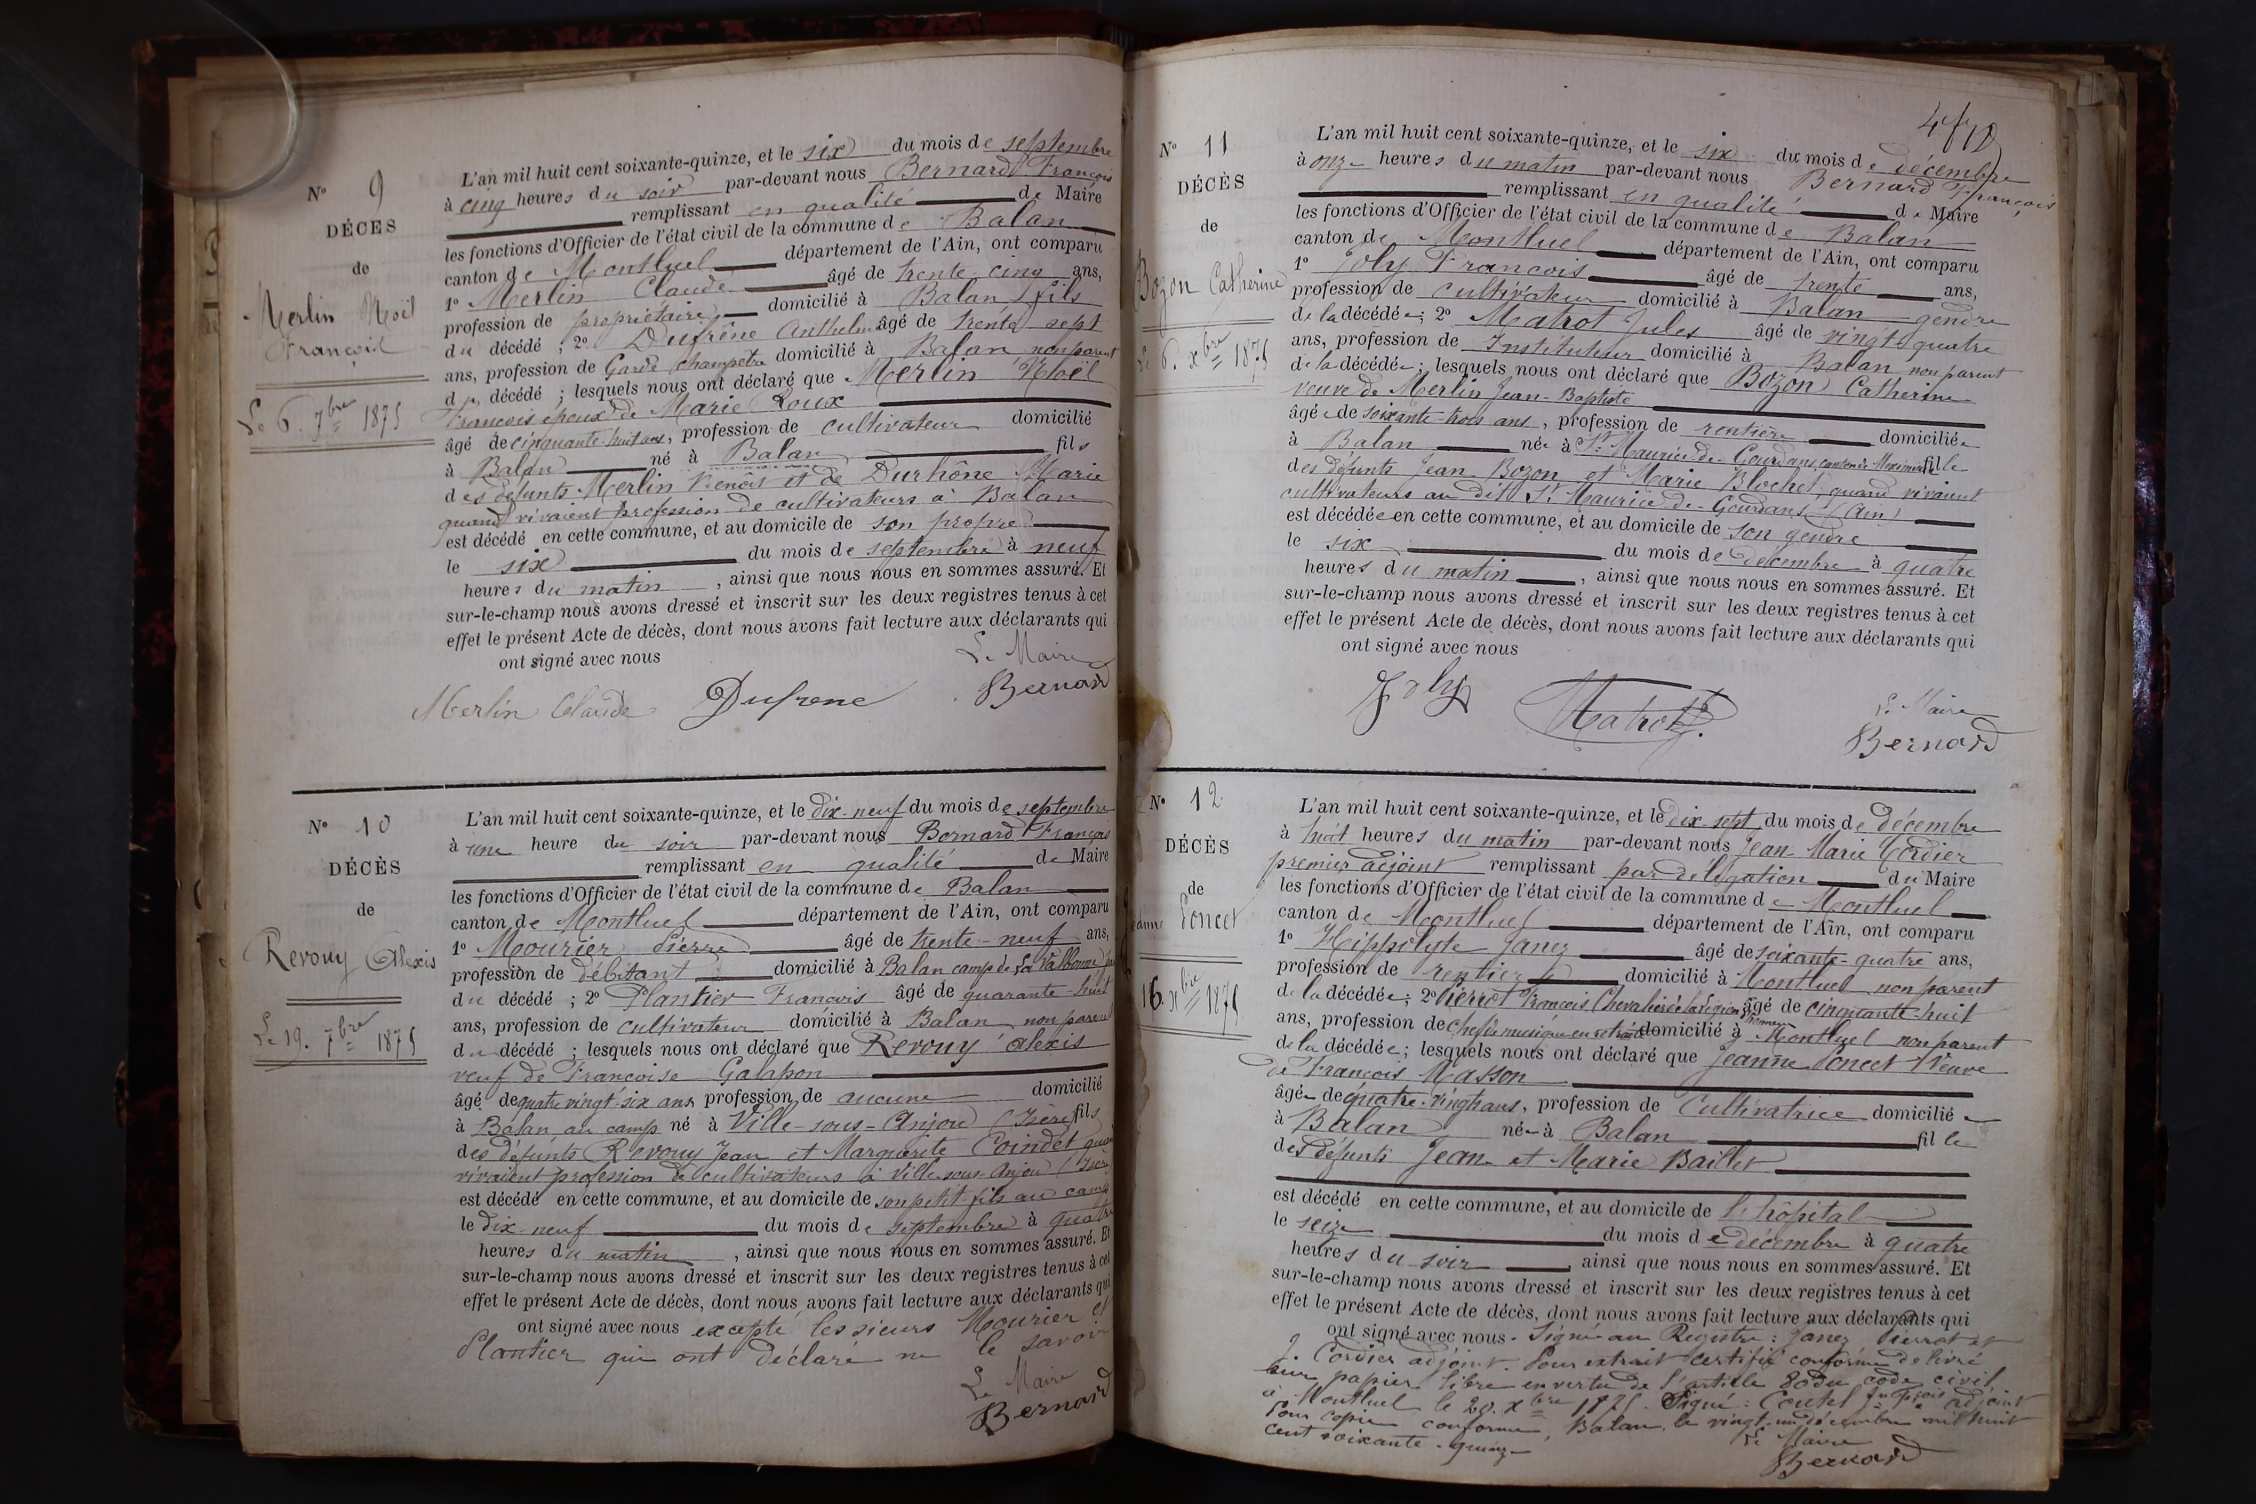 N° 9
DÉCES
de
Merlin Noël
François
Le 6. 7bre 1875
L'an mil huit cent soixante-quinze, et le six du mois de septembre
à cinq heures du soir par-devant nous Bernard François
remplissant en qualité de Maire
les fonctions d'Officier de l'état civil de la commune de Balan
canton de Montluel département de l'Ain, ont comparu
1° Merlin Claude âgé de trente cinq ans,
profession de propriétaire domicilié à Balan fils
du décédé ; 2° Dufrêne Anthelme âgé de trente sept
ans, profession de Garde champêtre domicilié à Balan non parent
du décédé ; lesquels nous ont déclaré que Merlin Noël
François époux de Marie Roux
âgé de cinquante huit ans, profession de cultivateur domicilié
à Balan né à Balan fils
des défunts Merlin Benoit et de Durhône Marie
quand vivaient profession de cultivateurs à Balan
est décédé en cette commune, et au domicile de son propre
le six du mois de septembre à neuf
heures du matin , ainsi que nous nous en sommes assuré. Et
sur-le-champ nous avons dressé et inscrit sur les deux registres tenus à cet
effet le présent Acte de décès, dont nous avons fait lecture aux déclarants qui
ont signé avec nous
Le Maire
Merlin Claude Dufrene Bernard
N° 10
DÉCÈS
de
Revouy Alexis
Le 19. 7bre 1875
L'an mil huit cent soixante-quinze, et le dix-neuf du mois de septembre
à une heure du soir par-devant nous Bernard François
remplissant en qualité de Maire
les fonctions d'Officier de l'état civil de la commune de Balan
canton de Montluel département de l'Ain, ont comparu
1° Mourier Pierre âgé de trente-neuf ans,
profession de débitant domicilié à Balan camp de La Valbonne
du décédé ; 2° Plantier François âgé de quarante-huit
ans, profession de cultivateur domicilié à Balan non parent
du décédé ; lesquels nous ont déclaré que Revouy Alexis
veuf de Françoise Galapon
âgé de quatre vingt-six ans profession de aucune domicilié
à Balan au camp né à Ville-sous-Anjou (Isère) fils
des défunts Revouy Jean et Marguerite Coindet quand
vivaient profession de cultivateurs à Ville sous Anjou (Isère
est décédé en cette commune, et au domicile de son petit-fils au camp
le dix-neuf du mois de septembre à quatre
heures du matin , ainsi que nous nous en sommes assuré. Et
sur-le-champ nous avons dressé et inscrit sur les deux registres tenus à cet
effet le présent Acte de décès, dont nous avons fait lecture aux déclarants qui
ont signé avec nous excepté les sieurs Mourier et
Plantier qui ont déclaré ne le savoir
Le Maire
Bernard
N° 11
DÉCÈS
de
Bozon Catherine
Le 6. xbre 1875
L'an mil huit cent soixante-quinze, et le six du mois de décembre
à onze heures du matin par-devant nous Bernard François
remplissant en qualité de Maire
les fonctions d'Officier de l'état civil de la commune de Balan
canton de Montluel département de l'Ain, ont comparu
1° Joly François âgé de trente ans,
profession de cultivateur domicilié à Balan gendre
de la décédée ; 2° Matrot Jules âgé de vingt-quatre
ans, profession de Instituteur domicilié à Balan non parent
de la décédée ; lesquels nous ont déclaré que Bozon Catherine
veuve de Merlin Jean-Baptiste
âgée de soixante-trois ans, profession de rentière domiciliée
à Balan née à St Maurice-de-Gourdans, canton de Meximieux fille
des défunts Jean Bozon et Marie Blochet, quand vivaient
cultivateurs au dit St Maurice-de-Gourdans (Ain)
est décédée en cette commune, et au domicile de son gendre
le six du mois de décembre à quatre
heures du matin , ainsi que nous nous en sommes assuré. Et
sur-le-champ nous avons dressé et inscrit sur les deux registres tenus à cet
effet le présent Acte de décès, dont nous avons fait lecture aux déclarants qui
ont signé avec nous
Joly Matrot Le Maire
Bernard
N° 12
DÉCÈS
de
Poncet
16 xbre 1875
L'an mil huit cent soixante-quinze, et le dix-sept du mois de décembre
à huit heures du matin par-devant nous Jean-Marie Cordier
premier adjoint remplissant par délégation du Maire
les fonctions d'Officier de l'état civil de la commune de Montluel
canton de Montluel département de l'Ain, ont comparu
1° Hippolyte Janez âgé de soixante-quatre ans,
profession de rentier domicilié à Montluel non parent
de la décédée ; 2° Pierrot François Chevalier de la Légion d'honneur âgé de cinquante-huit
ans, profession de chef de musique en retraite domicilié à Montluel non parent
de la décédée ; lesquels nous ont déclaré que Jeanne Poncet Veuve
de François Masson
âgée de quatre-vingts ans, profession de Cultivatrice domiciliée
à Balan née à Balan fille
des défunts Jean et Marie Baillet
est décédé en cette commune, et au domicile de l'hôpital
le seize du mois de décembre à quatre
heures du soir , ainsi que nous nous en sommes assuré. Et
sur-le-champ nous avons dressé et inscrit sur les deux registres tenus à cet
effet le présent Acte de décès, dont nous avons fait lecture aux déclarants qui
ont signé avec nous. Signé au Registre : Janez Pierrot et
J. Cordier adjoint. Pour extrait certifié conforme delivré
sur papier libre en vertu de l'article 80 du code civil
à Montluel le 20. xbre 1875. Signé : Coutel fçois adjoint
Pour copie conforme, Balan, le vingt-un décembre mil huit
cent soixante-quinze
Le Maire
Bernard